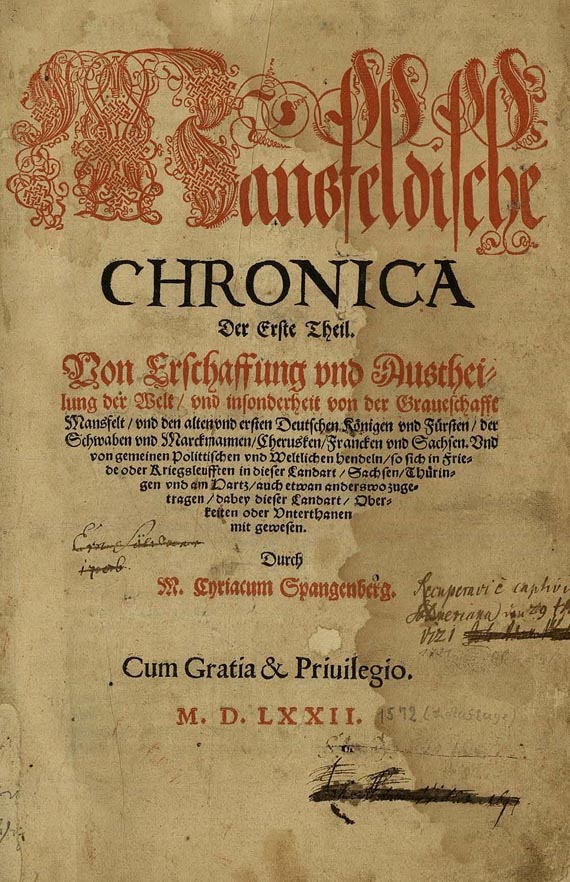 Mansfeldische
CHRONICA
Der Erste Theil.
Von Erschaffung vnd Austhei-
lung der Welt/ vnd insonderheit von der Graueschafft
Mansfelt/ vnd den alten vnd ersten Deutschen Königen vnd Fürsten/ der
Schwaben vnd Marckmannen/ Cherusken/ Francken vnd Sachsen. Vnd
von gemeinen Polittischen vnd Weltlichen hendeln/ so sich in Frie-
de oder Kriegsleufften in dieser Landart/ Sachsen/ Thürin-
gen vnd am Hartz/ auch etwan anderswo zuge-
tragen/ dabey dieser Landart/ Ober-
keiten oder Vnterthanen
mit gewesen.
Durch
M. Cyriacum Spangenberg.
Cum Gratia & Priuilegio.
M. D. LXXII. 1572